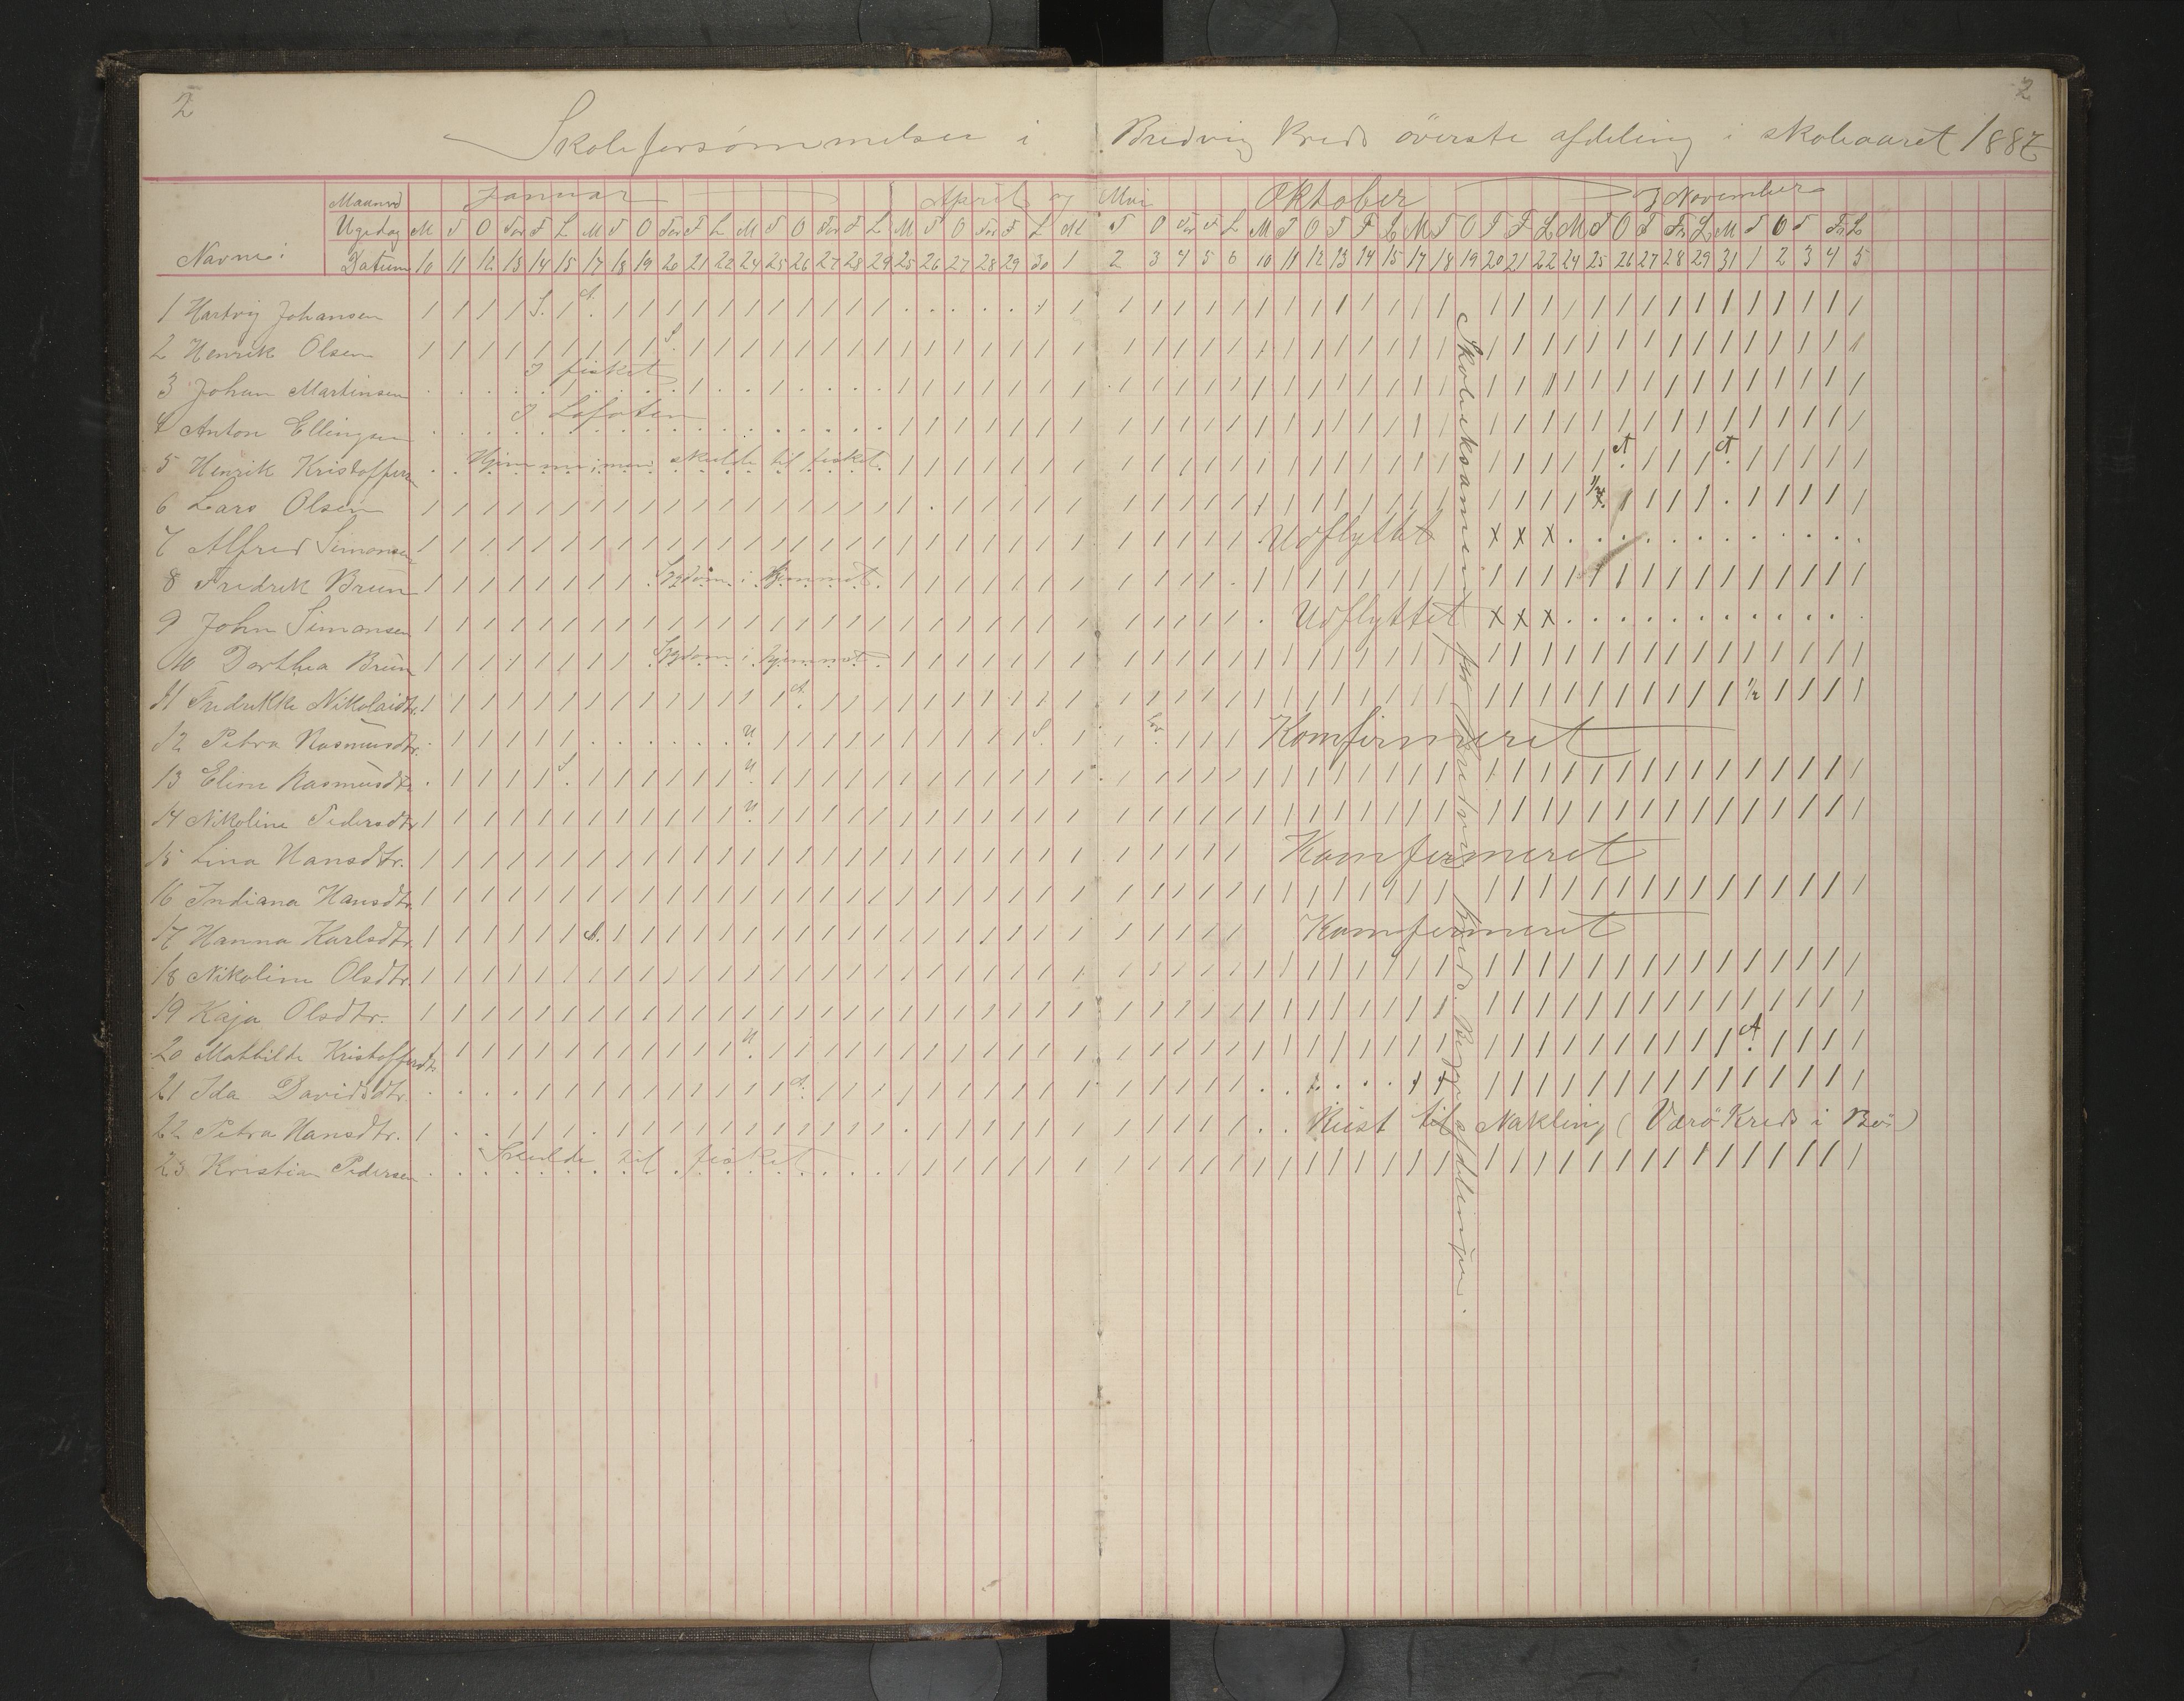 2
2
Skoleforsømmelser i Bredvig Kreds överste afdeling i skoleaaret 1887
Maaned Januar April og Mai Oktober og November
Ugedag M T O Tor F L M T O Tor F L M T O Tor F L M T O Tor F L M T O Tor F L M T O T F L M T O T F L M T O T Fr L M T O T Fr L
Navne: Datum 10 11 12 13 14 15 17 18 19 20 21 22 24 25 26 27 28 29 25 26 27 28 29 30 1 2 3 4 5 6 10 11 12 13 14 15 17 18 19 20 21 22 24 25 26 27 28 29 31 1 2 3 4 5
1 Hartvig Johansen S. A.
2 Henrik Olsen S.
3 Johan Martinsen I fisket
4 Anton Ellingsen I Lofoten
5 Henrik Kristoffersen skulde til fisket A. A.
6 Lars Olsen
7 Alfred Simonsen Udflyttet x x x
8 Fredrik Brun Sygdom i hjemmet
9 John Simonsen Udflyttet x x x
10 Dorthea Brun Sygdom i hjemmet
11 Fredrikke Nikolaidtr. A. 1/2
12 Petra Rasmusdtr. U S. Komfirmeret
13 Eline Rasmusdtr. S. U
14 Nikoline Pedersdtr. U
15 Lina Hansdtr. Komfirmeret
16 Indiana Hansdtr.
17 Hanna Karlsdtr. A. Komfirmeret
18 Nikoline Olsdtr.
19 Kaja Olsdtr.
20 Mathilde Kristoffersdtr. U A.
21 Ida Davidsdtr. A.
22 Petra Hansdtr. Reist til Nakling (Værö Kreds i Bö)
23 Kristian Pedersen Skulde til fisket
Skoleeksamen for Bredvig Kreds. Begge afdelinger.